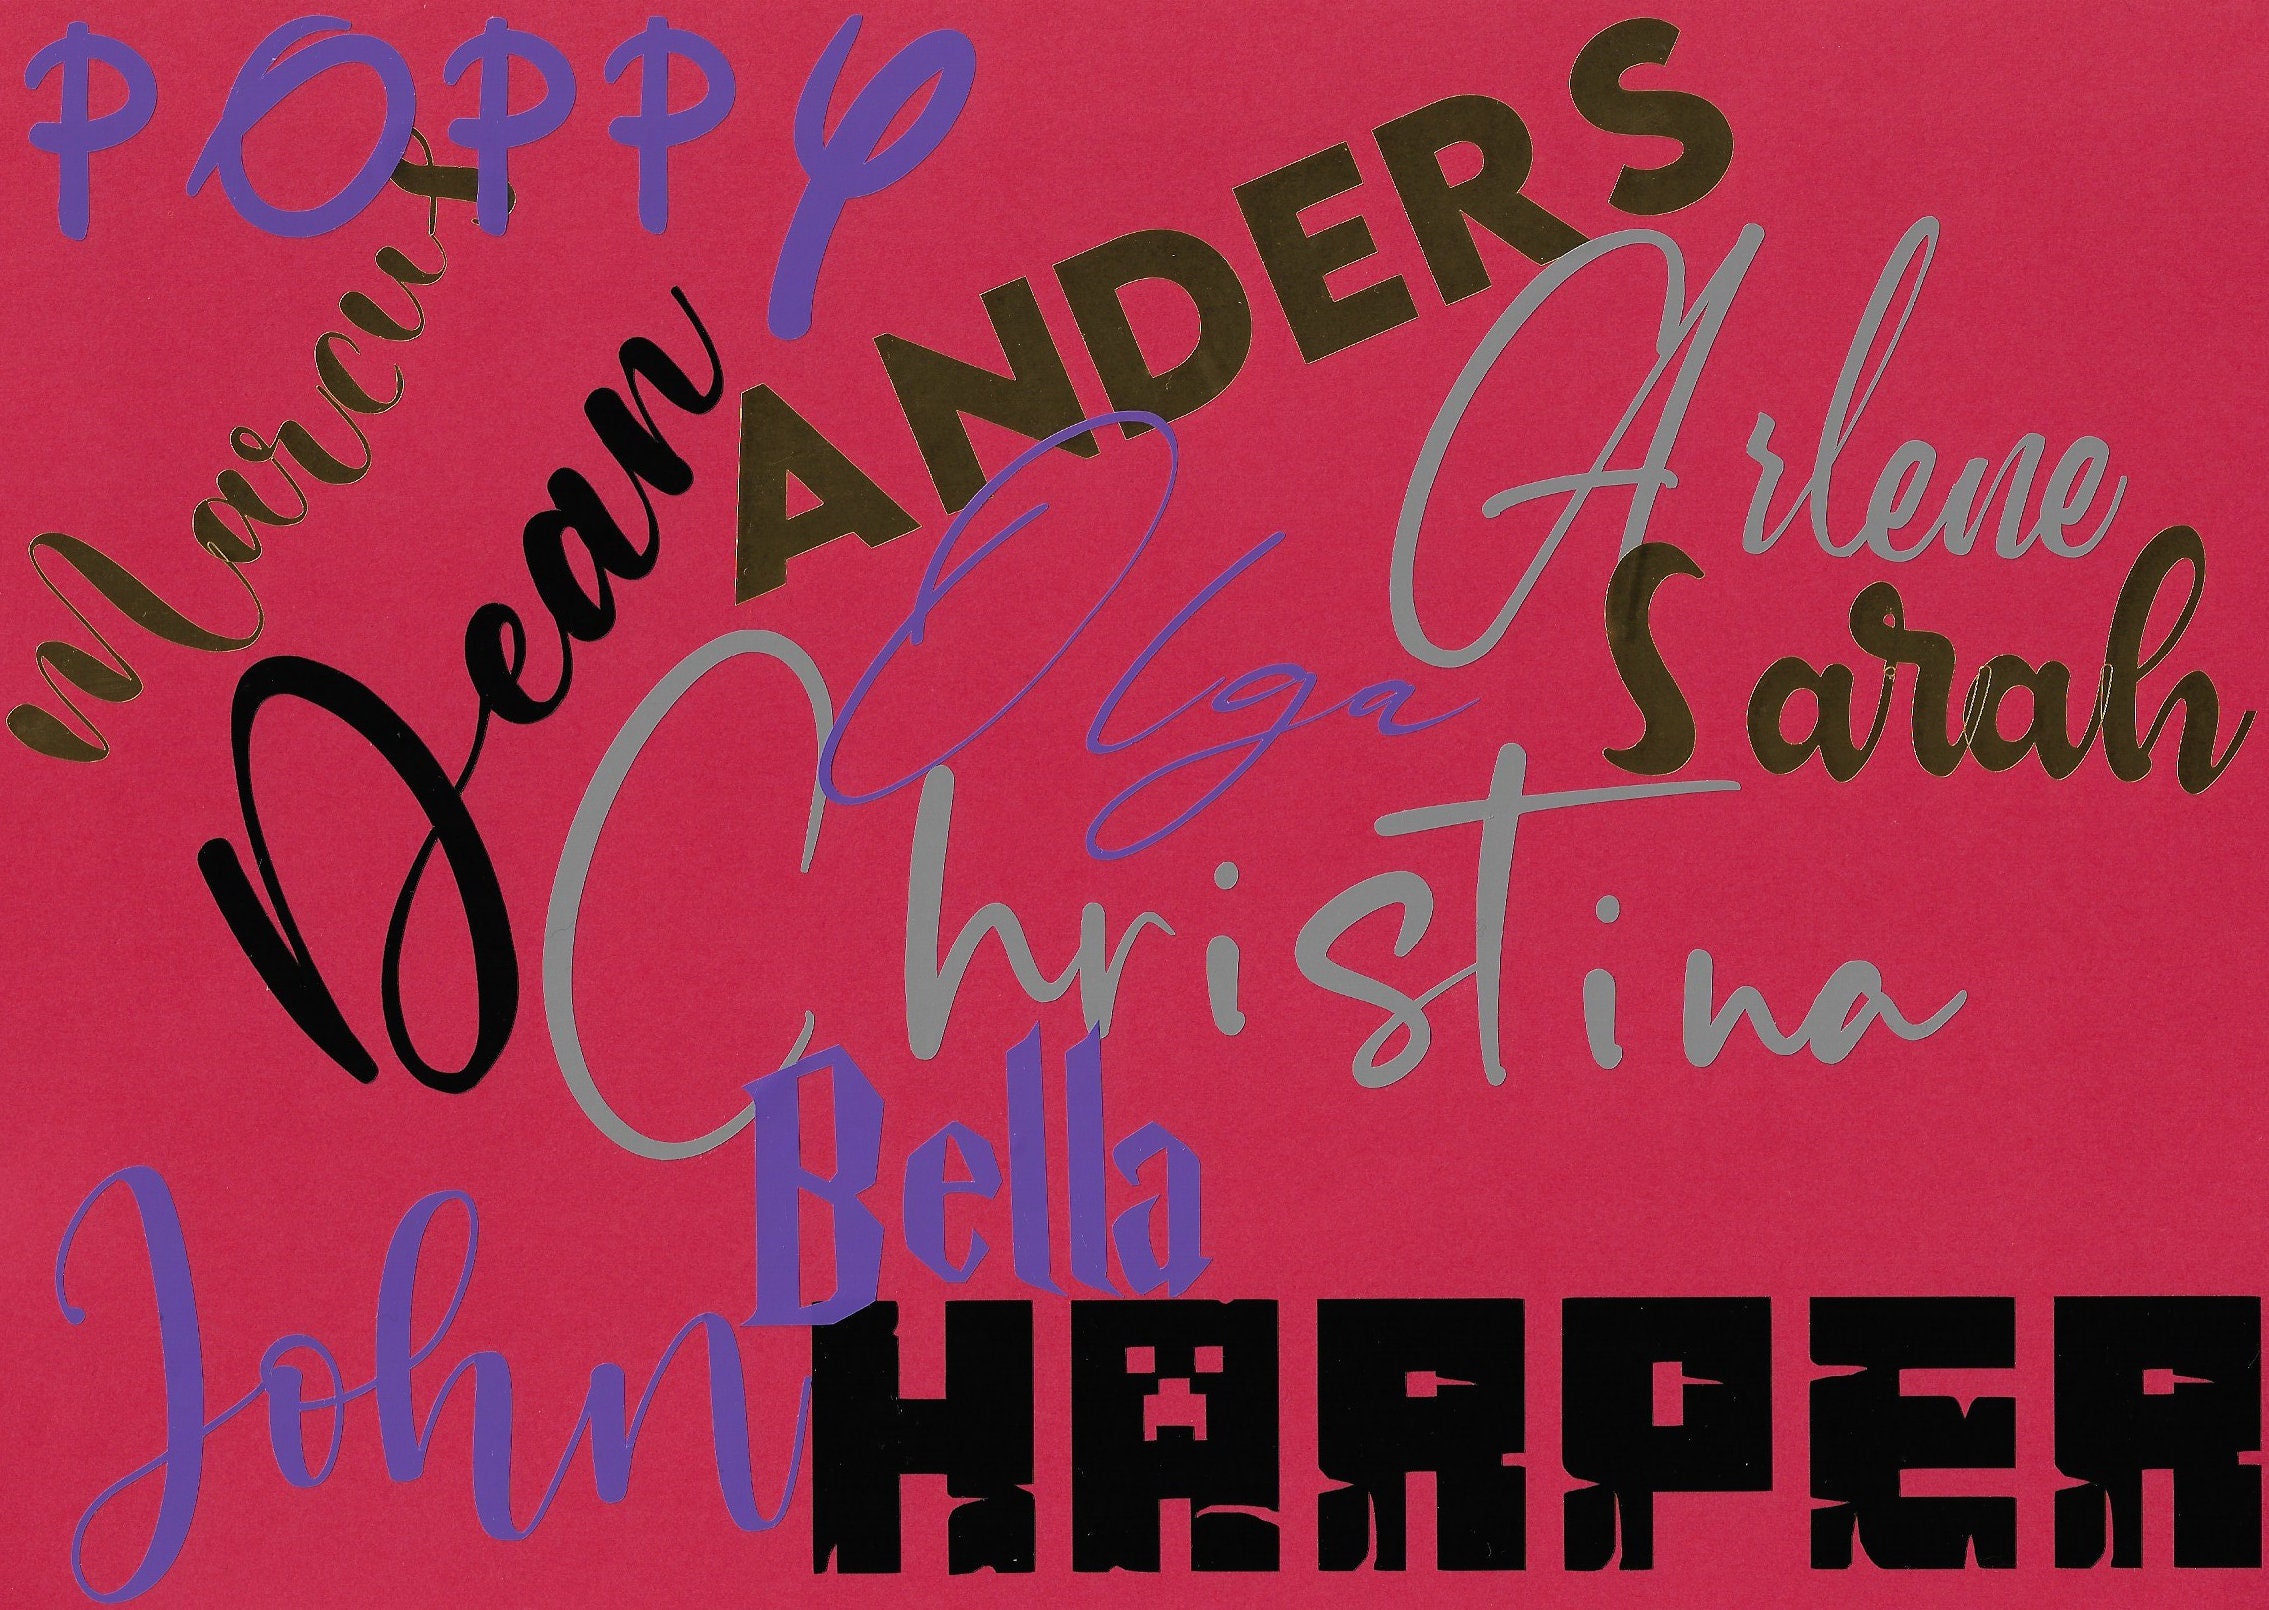 POPPY
Marcus
ANDERS
Dean
Arlene
Olga
Sarah
Christina
Bella
John
HARPER